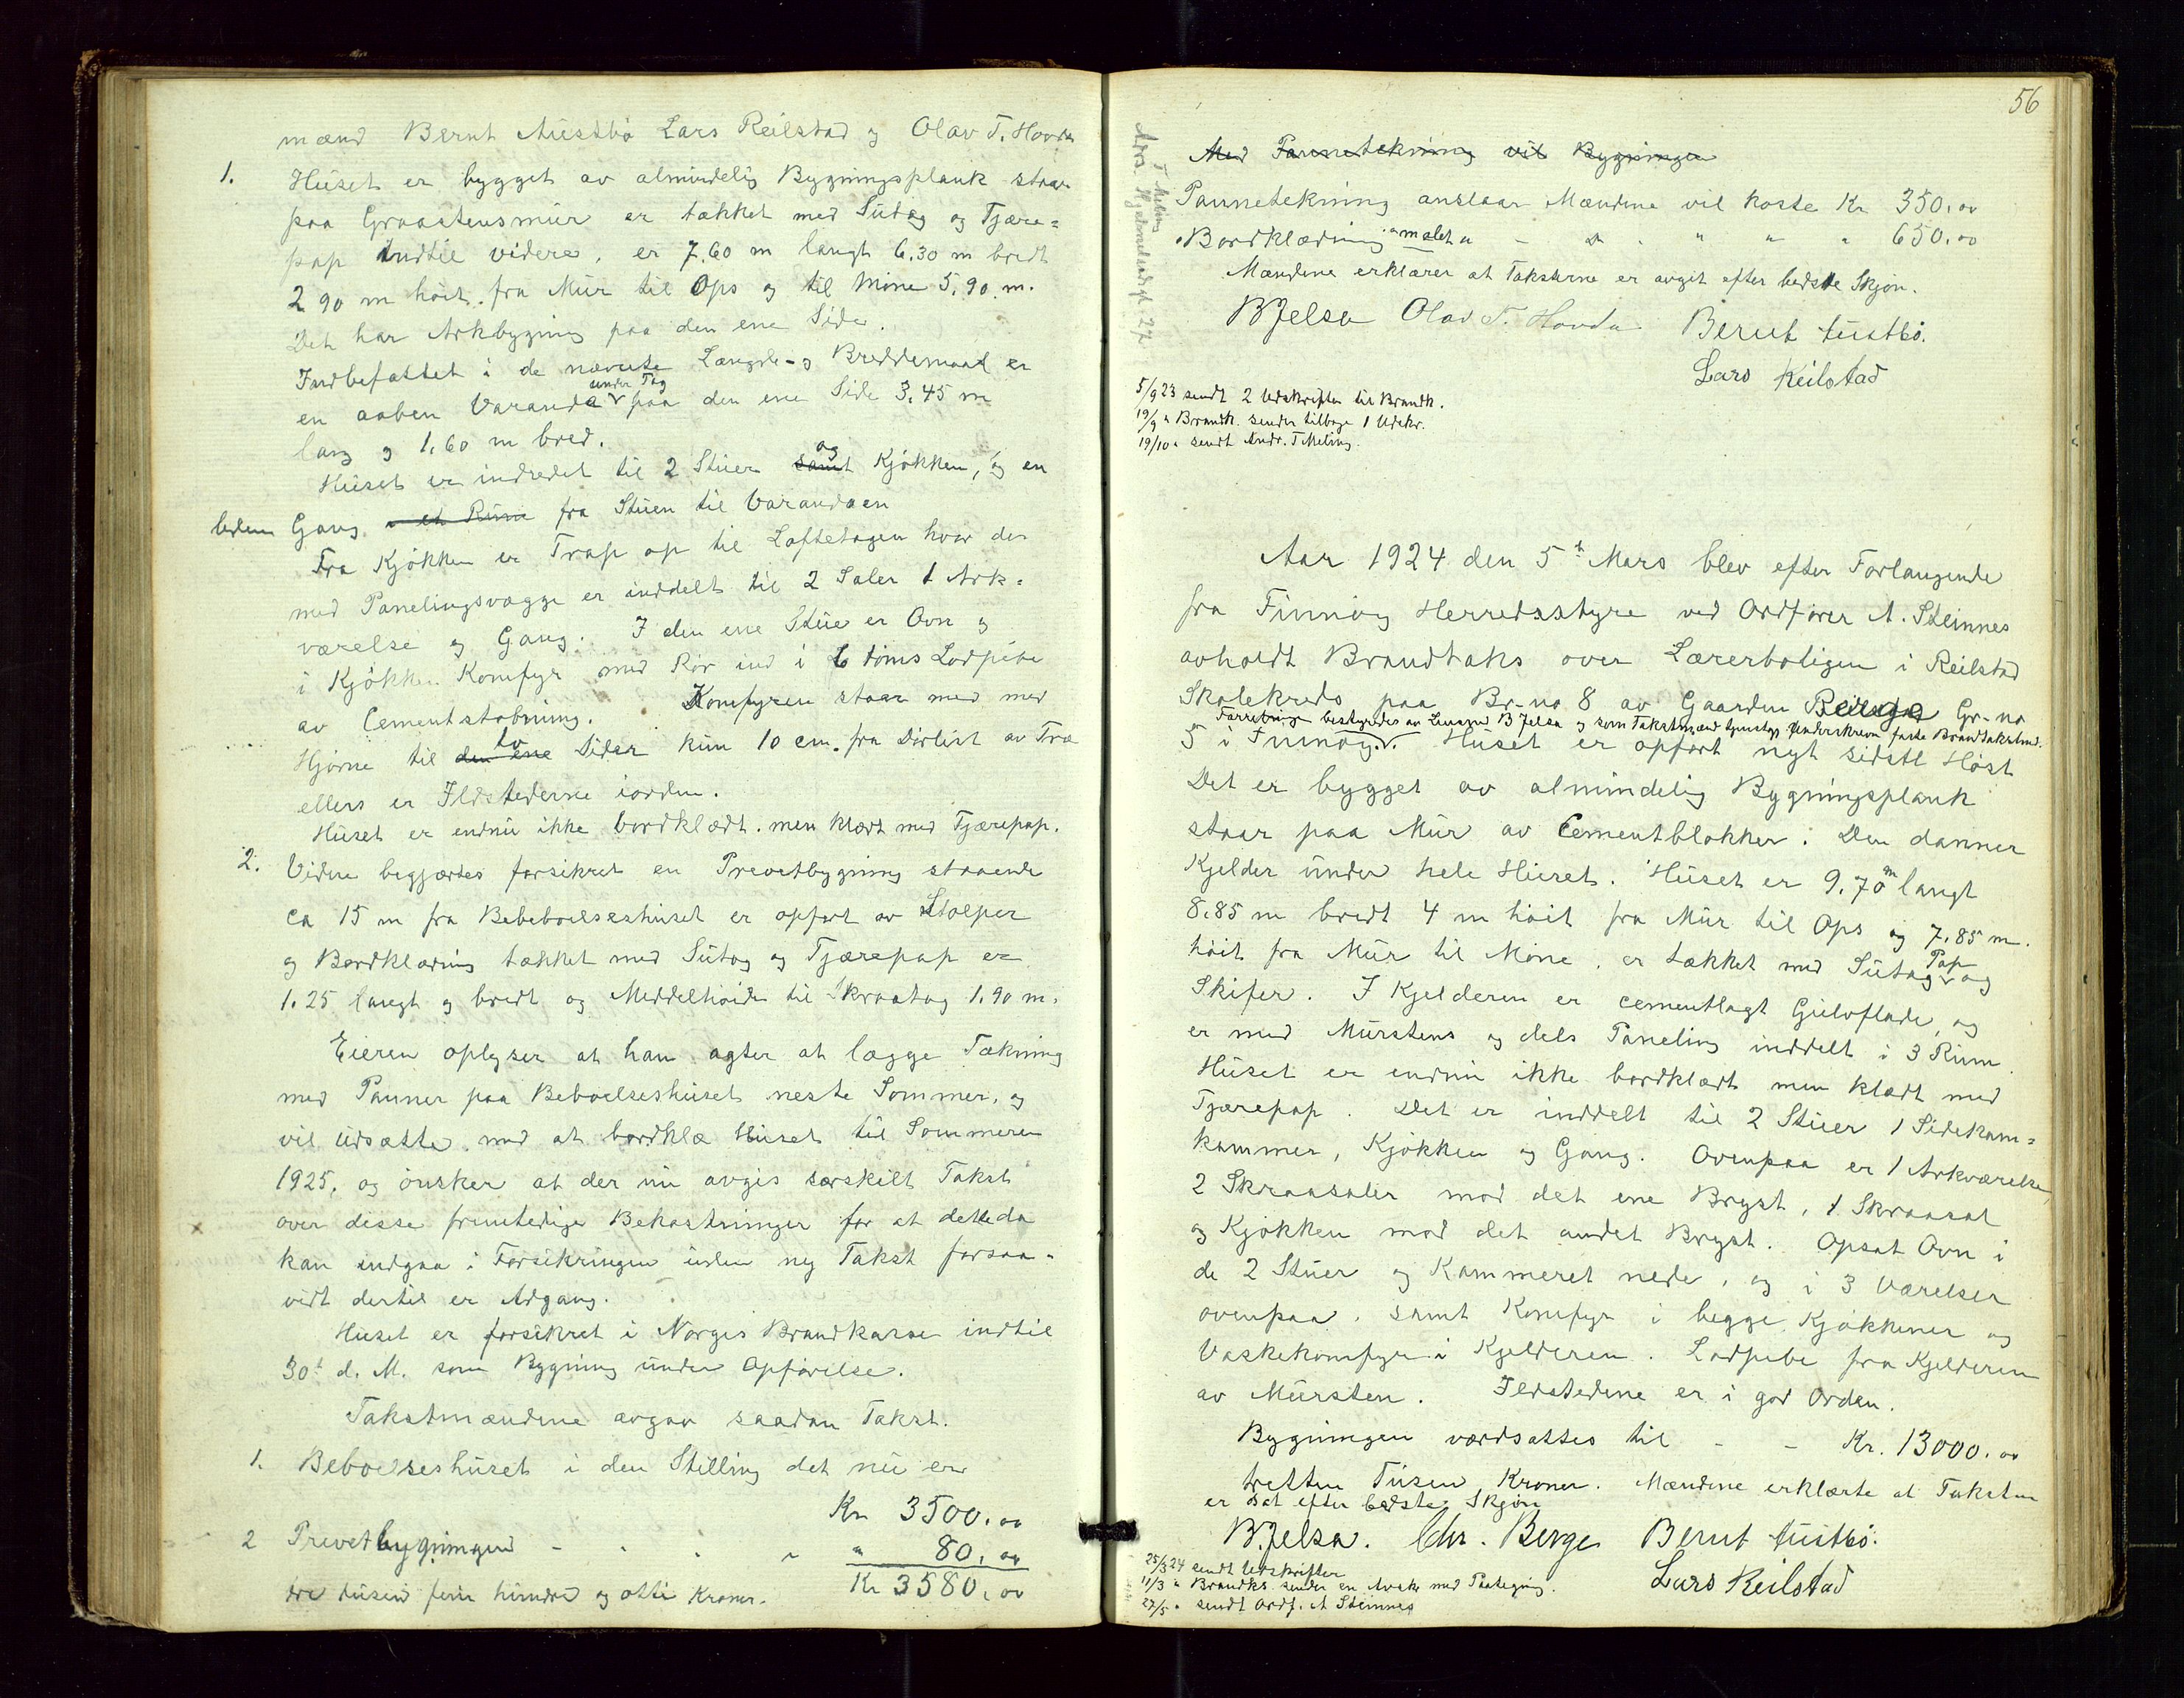 mænd Bernt Austbø Lars Reilstad og Olav T. Hovda
1. Huset er bygget av almindelig Bygningsplank staar
paa Graastensmur er tækket med Sutag og Tjære=
pap indtil videre, er 7.60 m langt 6.30 m bredt
2 90 m høit fra Mur til Ops og til Møne 5.90 m.
Det har Arkbygning paa den ene Side.
Indbefattet i de nævnte Længde- og Breddemaal er
en aaben Varanda under Tag paa den ene Side 3.45 m
lang og 1.60 m bred.
Huset er indredet til 2 Stuer samt og Kjøkken, og en
liden Gang i et Rum fra Stuen til Varandaen
Fra Kjøkken er Trap op til Loftetagen hvor der
med Panelingsvægge er inddelt til 2 Saler 1 Ark=
værelse og Gang. I den ene Stue er Ovn og
i Kjøkken Komfyr med Rør ind i 6 toms Lodpibe
av Cementstøbning. Komfyren staar med med
Hjørne til den ene to Sider kun 10 cm. fra Dørlist av Træ
ellers er Ildstederne iorden.
Huset er endnu ikke bordklædt. men klædt med Tjærepap.
2. Videre begjærtes forsikret en Prevetbygning staaende
ca 15 m fra Bebeboelseshuset er opført av Stolper
og Bordklædning tækket med Sutag og Tjærepap er
1.25 langt og bredt og Meddelhøide til Skraatag 1.90 m.
Eieren oplyser at han agter at lægge Tækning
med Panner paa Beboelseshuset neste Sommer, og
vil udsætte med at bordklæ Huset til Sommeren
1925. og ønsker at der nu avgis særskilt Takst
over disse fremtedige Bekostninger for at dette da
kan indgaa i Forsikringen uden ny Takst forsaa=
vidt dertil er Adgang.
Huset er forsikret i Norges Brandkasse indtil
30t d. M. som Bygning under Opførelse.
Takstmændene avgav saadan Takst.
1. Beboelseshuset i den Stilling det nu er
Kr 3500.00
2 Prevetbygningen - - - " 80.00
tre tusend fem hundre og otti Kroner. Kr 3580.00
56
Med Pannetekning vil Bygningen
Pannetekning anslaar Mændene vil koste Kr 350.00
"Bordklædning "malet " - D . " " " 650.00
Mændene erklærer at Taksterne er avgit efter bedste Skjøn.
BJelsa Olav T. Hovda Bernt Austbø.
Lars Reilstad
5/9 23 sendt 2 Udskrifter til Brandk.
19/9 " Brandk. sender tilbage 1 Udskr.
19/10 " sendt Andr. T Meling.
Aar 1924 den 5te Mars blev efter Forlangende
fra Finnøy Herredsstyre ved Ordfører A. Steinnes
avholdt Brandtakst over Lærerboligen i Reilstad
Skolekreds paa Br-no 8 av Gaarden Berge Gr-no
Forretning bestyredes av Lensmand B Jelsa og som Takstmænd tjenstgj. Underskrevne faste Brandtakstmd.
5 i Finnøy. Huset er opført nyt sidste Høst
Det er bygget av almindelig Bygningsplank
staar paa Mur av Cementblokker. Den danner
Kjelder under hele Huset. Huset er 9.70 m langt
8.85 m bredt 4 m høit fra Mur til Ops og 7.85 m.
høit fra Mur til Møne, er tækket med Sutag Pap og
Skifer. I Kjelderen er cementlagt Gulvflade, og
er med Murstens og dels Paneling inddelt i 3 Rum
Huset er endnu ikke bordklædt men klædt med
Tjærepap. Det er inddelt til 2 Stuer 1 Sidekam=
kammer, Kjøkken og Gang. Ovenpaa er 1 Arkværelse,
2 Skraasaler mod det ene Bryst, 1 Skraasal
og Kjøkken mod det andet Bryst. Opsat Ovn i
de 2 Stuer og Kammeret nede, og i 3 Værelser
ovenpaa, samt Komfyr i begge Kjøkkener og
Vaskekomfyr i Kjelderen. Lodpibe fra Kjelderen
av Mursten. Ildstedene er i god Orden.
Bygningen værdsættes til - - Kr. 13000.00
tretten Tusen Kroner. Mændene erklærte at Taksten
er sat efter bedste Skjøn
B.Jelsa. Chr. Berge Bernt Austbø.
Lars Reilstad
25/3 24 sendt Udskrifter
11/3 " Brandks. sender en Avskr med Paategning.
27/5 " sendt Ordf. A Steinnes